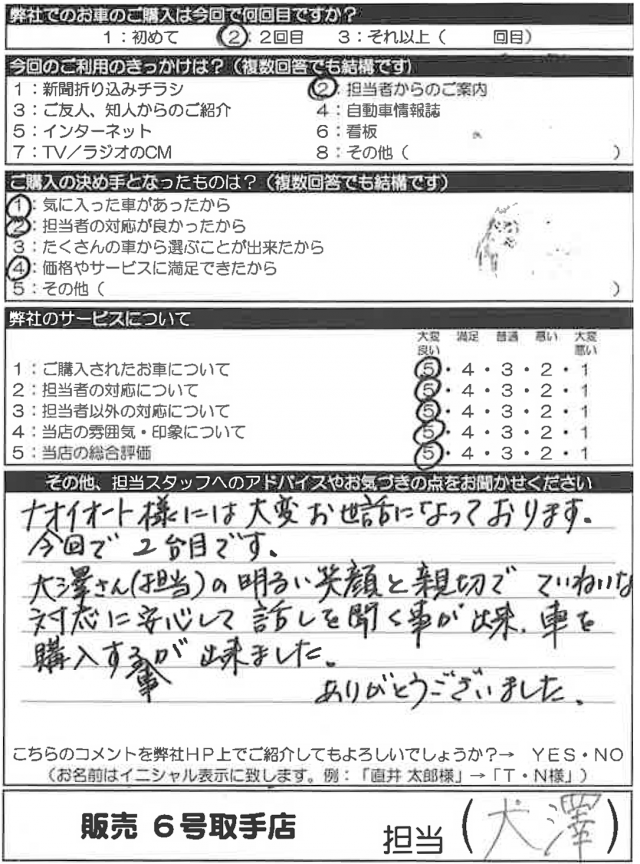 弊社でのお車のご購入は今回で何回目ですか？
1：初めて　②：2回目　3：それ以上（　　回目）
今回のご利用のきっかけは？（複数回答でも結構です）
1：新聞折り込みチラシ　②：担当者からのご案内
3：ご友人、知人からのご紹介　4：自動車情報誌
5：インターネット　6：看板
7：TV／ラジオのCM　8：その他（　　）
ご購入の決め手となったものは？（複数回答でも結構です）
①：気に入った車があったから
②：担当者の対応が良かったから
3：たくさんの車から選ぶことが出来たから
④：価格やサービスに満足できたから
5：その他（　　）
弊社のサービスについて
大変良い　満足　普通　悪い　大変悪い
1：ご購入されたお車について　⑤・4・3・2・1
2：担当者の対応について　⑤・4・3・2・1
3：担当者以外の対応について　⑤・4・3・2・1
4：当店の雰囲気・印象について　⑤・4・3・2・1
5：当店の総合評価　⑤・4・3・2・1
その他、担当スタッフへのアドバイスやお気づきの点をお聞かせください
ナオイオート様には大変お世話になっております。
今回で2台目です。
大澤さん(担当)の明るい笑顔と親切でていねいな
対応に安心して話しを聞く事が出来、車を
購入する事が出来ました。
ありがとうございました。
こちらのコメントを弊社HP上でご紹介してもよろしいでしょうか？→　YES・NO
（お名前はイニシャル表示に致します。例：「直井 太郎様」→「T・N様」）
販売 6号取手店　担当（大澤）